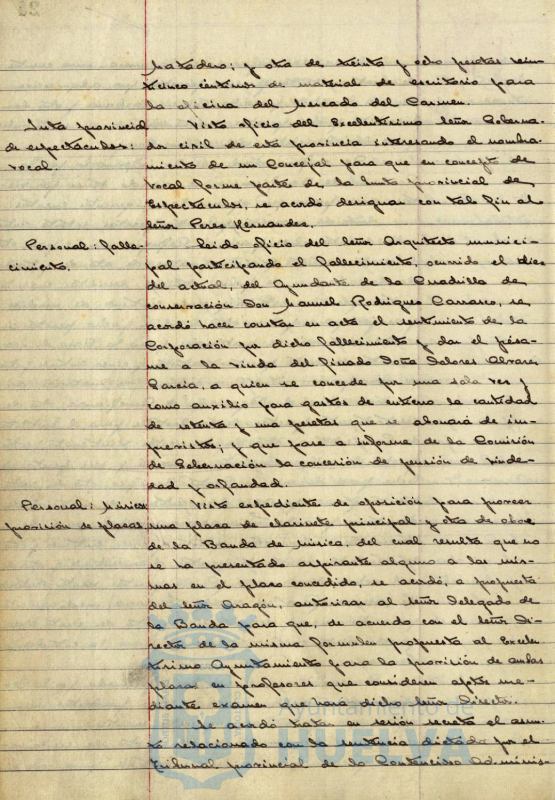 Matadero; y otra de treinta y ocho pesetas vein-
ticinco céntimos de material de escritorio para
la oficina del Mercado del Carmen.
Junta provincial
de espectáculos:
vocal.
Visto oficio del Excelentísimo Señor Goberna-
dor civil de esta provincia interesando el nombra-
miento de un Concejal para que en concepto de
vocal forme parte de la Junta provincial de
Espectáculos, se acordó designar con tal fin al
Señor Perez Hernandez.
Personal: falle-
cimiento.
Leido oficio del Señor Arquitecto munici-
pal participando el fallecimiento, ocurrido el dies
del actual, del Ayudante de la Cuadrilla de
conservación Don Manuel Rodriguez Carrasco, se
acordó hacer constar en acta el sentimiento de la
Corporación por dicho fallecimiento y dar el pésa-
me a la viuda del finado Doña Dolores Alvarez
Garcia, a quien se concede por una sola vez y
como auxilio para gastos de entierro la cantidad
de setenta y una pesetas que se abonará de im-
previstos; y que pase a informe de la Comisión
de Gobernación la concesión de pensión de viude-
dad y orfandad.
Personal: Música
provisión de plazas.
Visto expediente de oposición para proveer
una plaza de clarinete principal y otra de oboe
de la Banda de Música, del cual resulta que no
se ha presentado aspirante alguno a las mis-
mas en el plazo concedido, se acordó, a propuesta
del Señor Aragón, autorizar al Señor Delegado de
la Banda para que, de acuerdo con el Señor Di-
rector de la misma formulen propuesta al Excelen-
tísimo Ayuntamiento para la provisión de ambas
plazas en profesores que consideren aptos me-
diante examen que hará dicho Señor Director.
Se acordó tratar en sesión secreta el asun-
to relacionado con la sentencia dictada por el
Tribunal provincial de lo Contencioso Adminis-